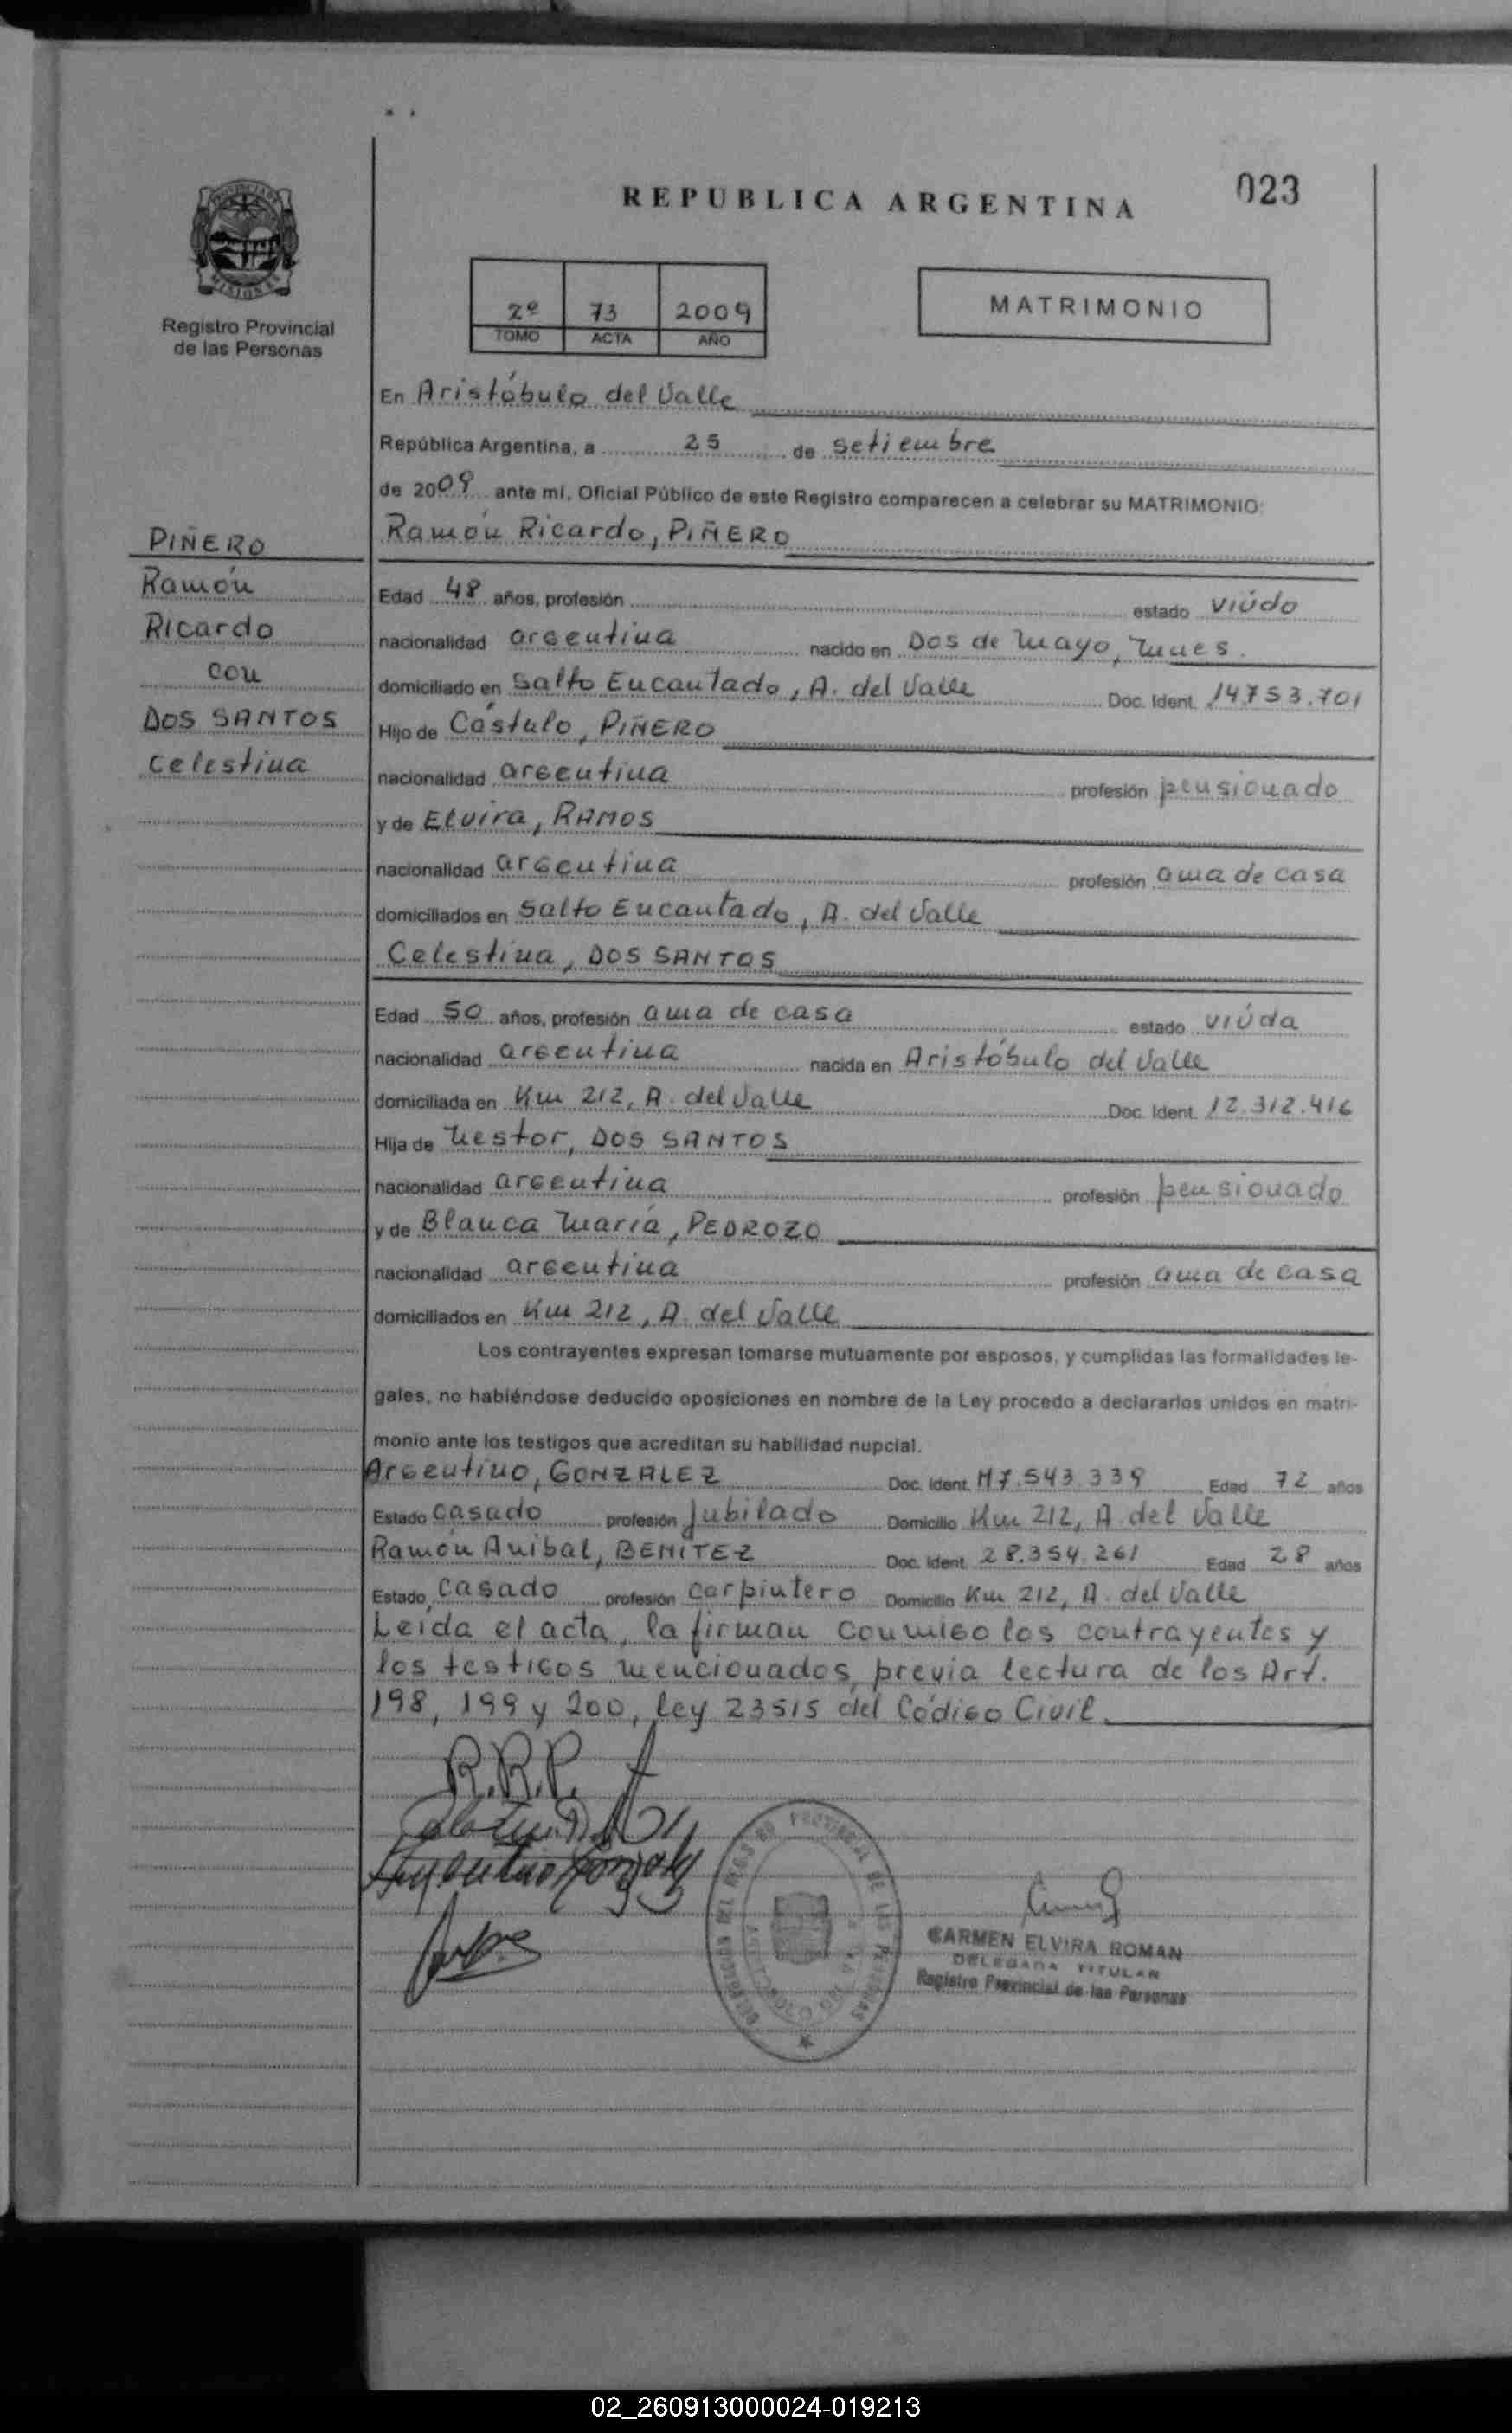 REPUBLICA ARGENTINA
023
PROVINCIA DE
MISIONES
Registro Provincial
de las Personas
2º 73 2009
TOMO ACTA AÑO
MATRIMONIO
En Aristóbulo del Valle
República Argentina, a 25 de setiembre
de 2009 ante mí, Oficial Público de este Registro comparecen a celebrar su MATRIMONIO:
PIÑERO
Ramón
Ricardo
con
DOS SANTOS
Celestina
Ramón Ricardo, PIÑERO
Edad 48 años, profesión estado viúdo
nacionalidad argentina nacido en Dos de Mayo, Mnes.
domiciliado en Salto Encantado, A. del Valle Doc. Ident. 14.753.701
Hijo de Cástulo, PIÑERO
nacionalidad argentina profesión pensionado
y de Elvira, RAMOS
nacionalidad argentina profesión ama de casa
domiciliados en Salto Encantado, A. del Valle
Celestina, DOS SANTOS
Edad 50 años, profesión ama de casa estado viúda
nacionalidad argentina nacida en Aristóbulo del Valle
domiciliada en Km 212, A. del Valle Doc. Ident. 12.312.416
Hija de Nestor, DOS SANTOS
nacionalidad argentina profesión pensionado
y de Blanca María, PEDROZO
nacionalidad argentina profesión ama de casa
domiciliados en Km 212, A. del Valle
Los contrayentes expresan tomarse mutuamente por esposos, y cumplidas las formalidades le-
gales, no habiéndose deducido oposiciones en nombre de la Ley procedo a declararlos unidos en matri-
monio ante los testigos que acreditan su habilidad nupcial.
Argentino, GONZALEZ Doc. Ident. M7.543.339 Edad 72 años
Estado casado profesión Jubilado Domicilio Km 212, A. del Valle
Ramón Anibal, BENITEZ Doc. Ident. 28.354.261 Edad 28 años
Estado casado profesión carpintero Domicilio Km 212, A. del Valle
Leida el acta, la firman conmigo los contrayentes y
los testigos mencionados, previa lectura de los Art.
198, 199 y 200, ley 23515 del Código Civil.
R.R.P.
Argentino Gonzalez
PROVINCIAL DE LAS PERSONAS
CARMEN ELVIRA ROMAN
DELEGADA TITULAR
Registro Provincial de las Personas
02_260913000024-019213